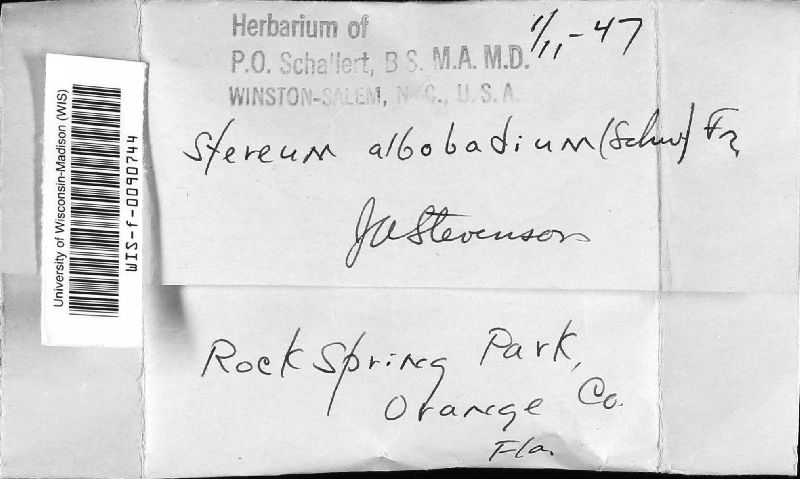 Herbarium of
P.O. Schallert, B S. M.A. M.D.
WINSTON-SALEM, N. C., U. S. A.
1/11-47
Stereum albobadium (Schw) Fr
JA Stevenson
Rock Spring Park,
Orange Co.
Fla.
University of Wisconsin-Madison (WIS)
WIS-f-0090744